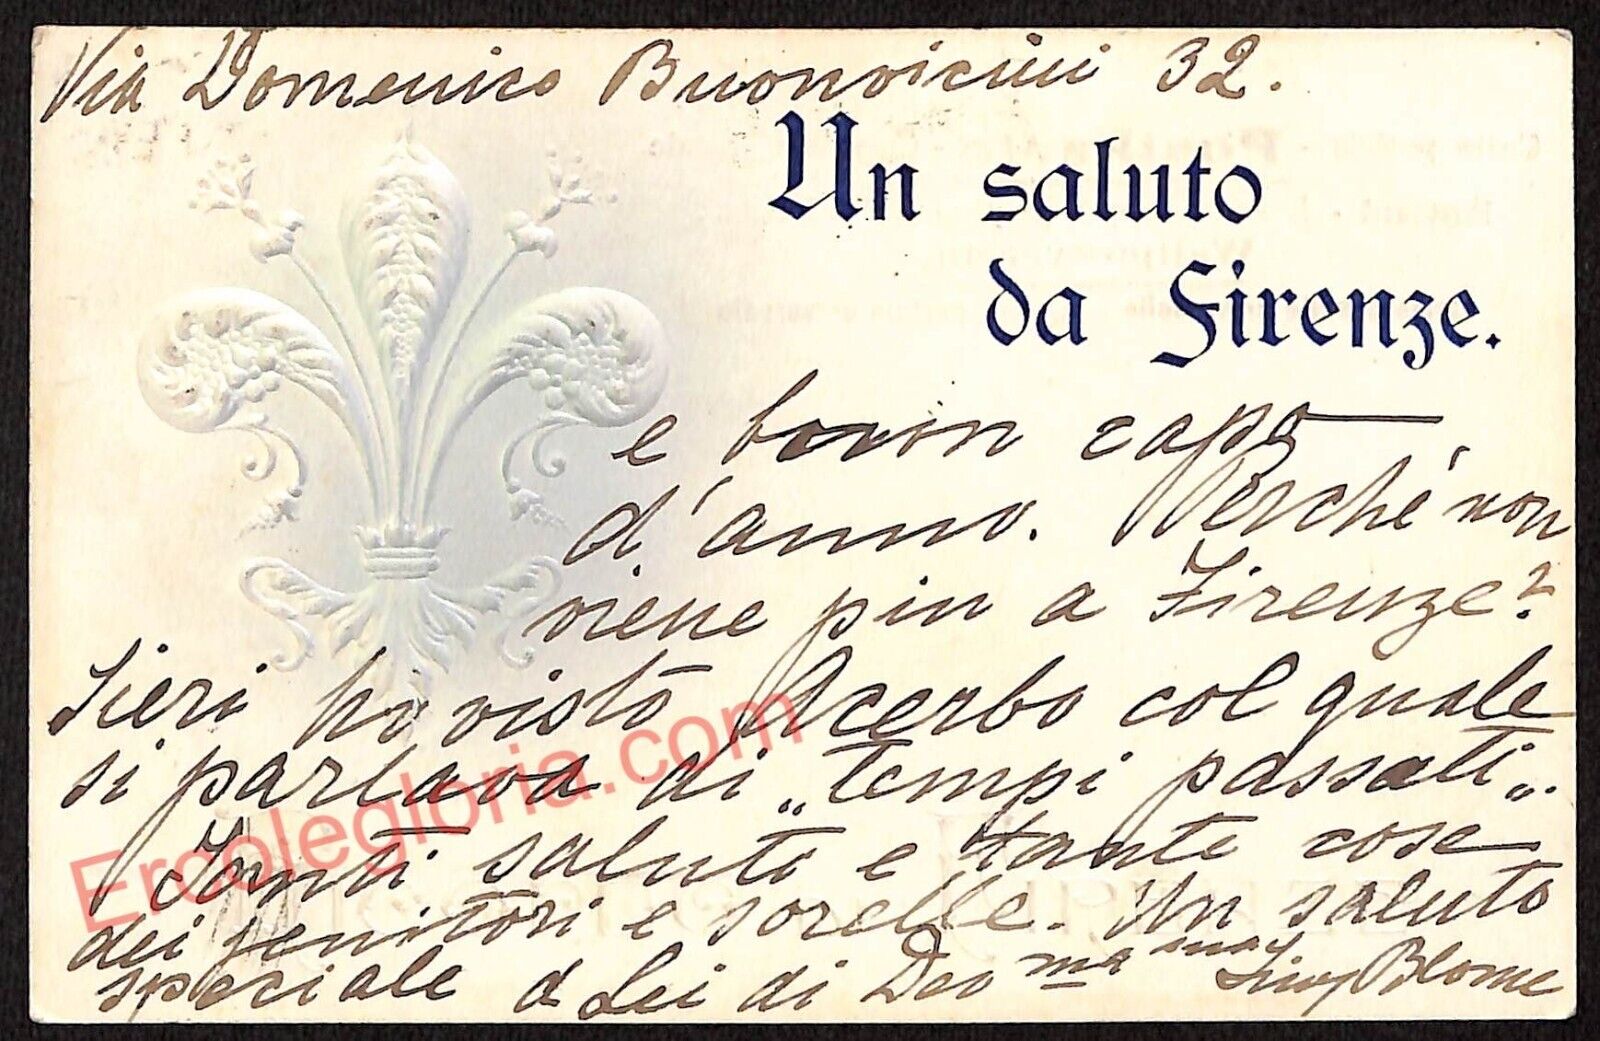 Via Domenico Buonvicini 32.
Un saluto
da Firenze.
e buon capo
d'anno. Perché non
viene piu a Firenze?
Jieri ho visto Acerbo col quale
si parlava di „tempi passati„.
Tanti saluti e tante cose
dei genitori e sorelle. Un saluto
speciale a Lei di Deoma sua Blome
Ercolegloria.com